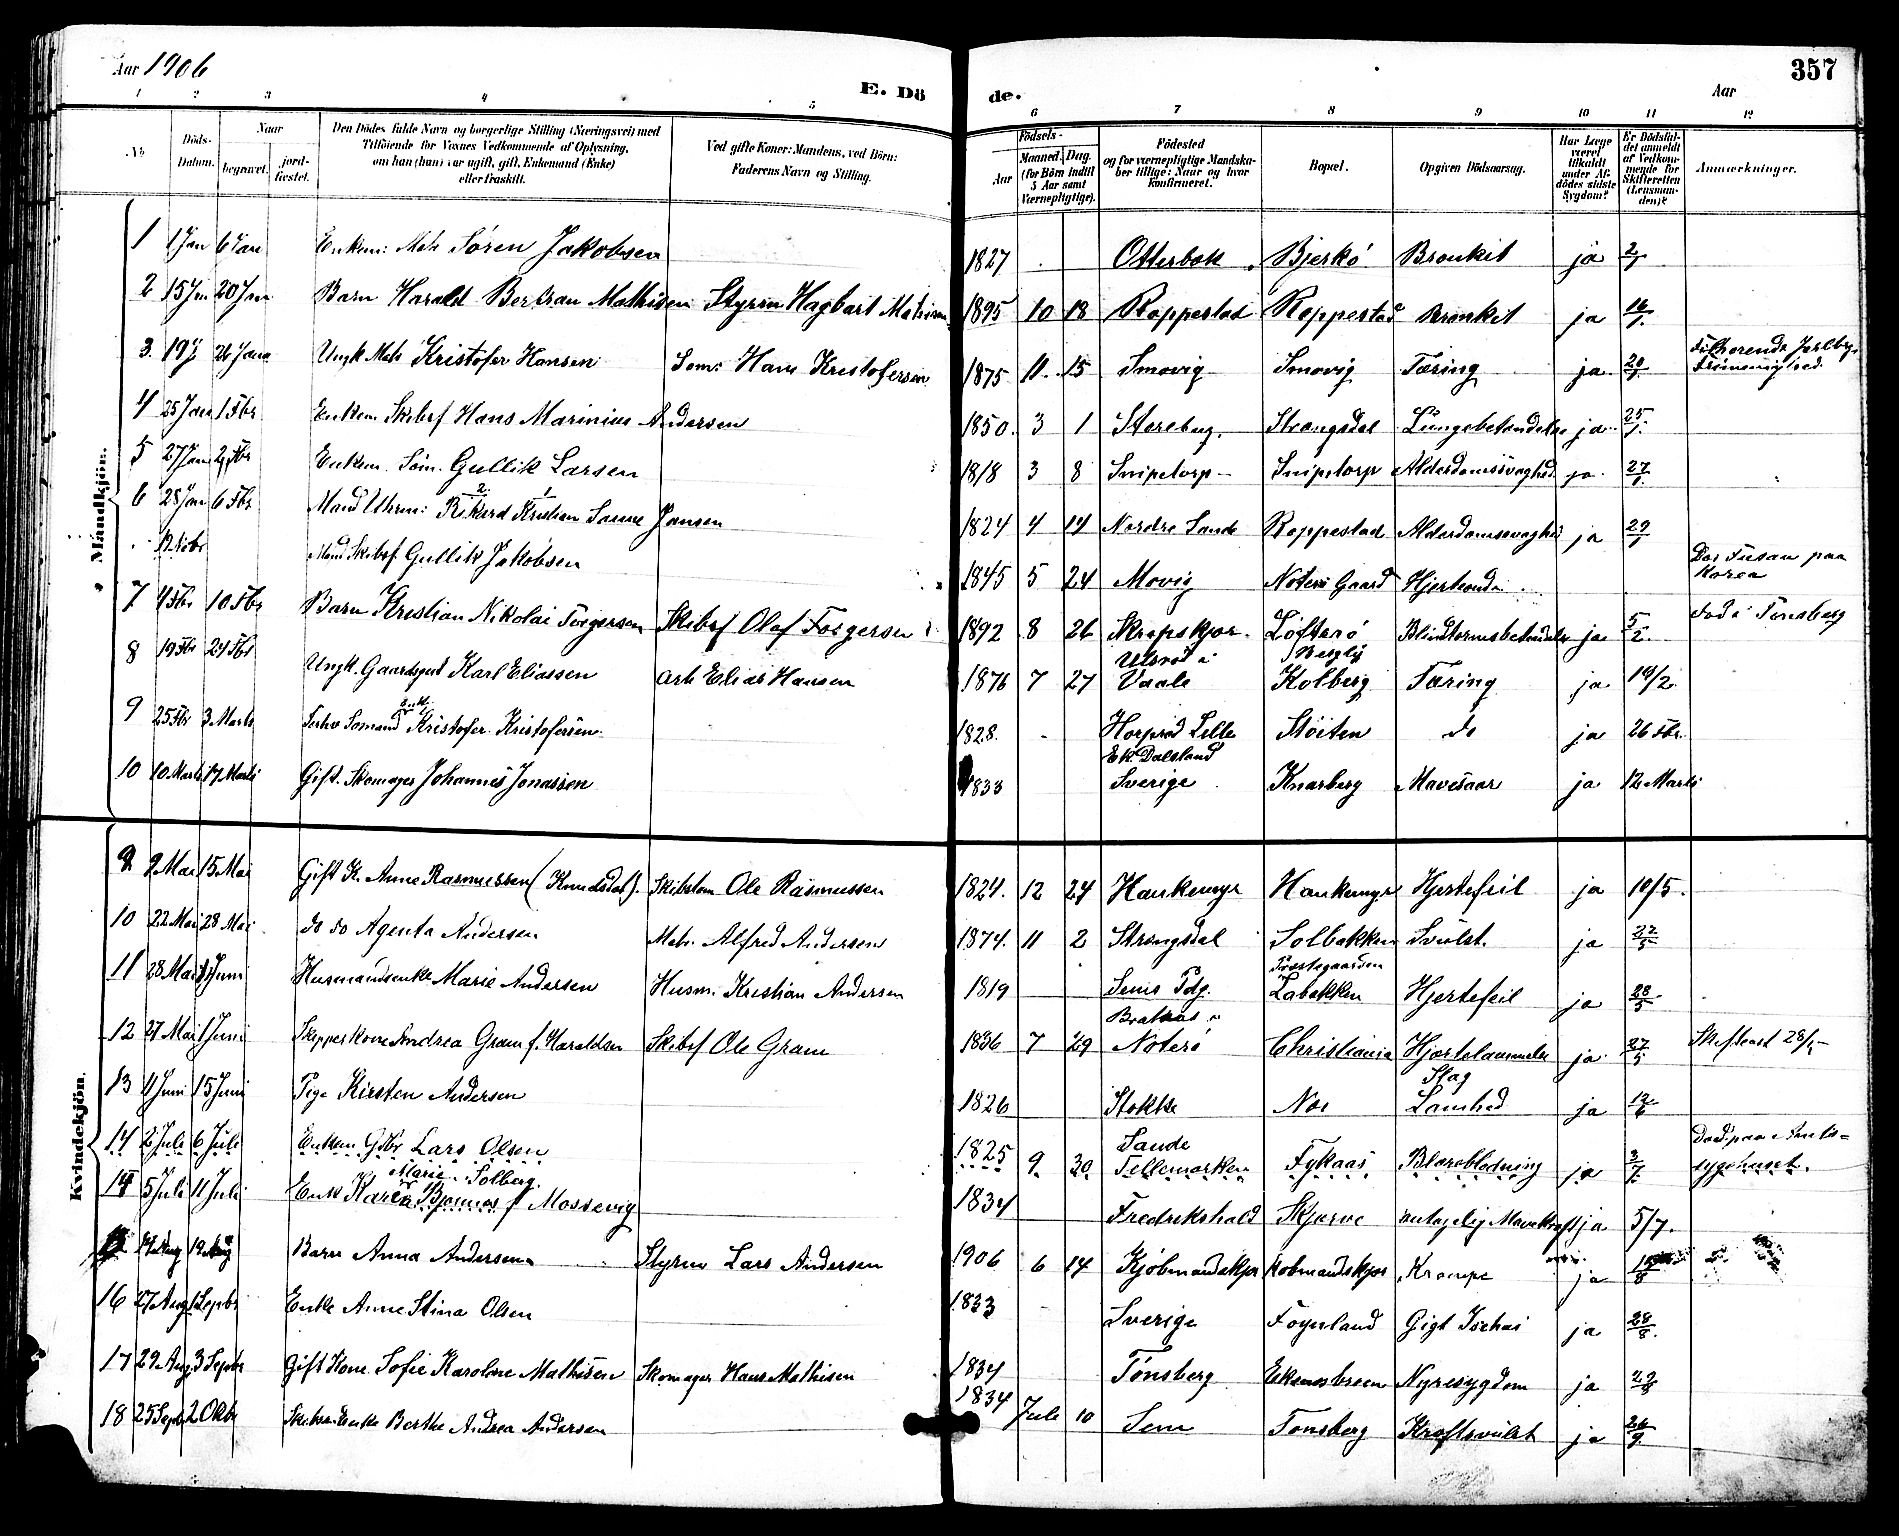 Aar 1906
E. Dö
de.
Aar
357
1 2 3 4 5 6 7 8 9 10 11 12
No
Döds-Datum.
Naar
begravet.
jord-fæstet.
Den Dödes fulde Navn og borgerlige Stilling (Næringsvei) med Tilföiende for Voxnes Vedkommende af Oplysning, om han (hun) var ugift, gift, Enkemand (Enke) eller fraskilt.
Ved gifte Koner: Mandens, ved Börn: Faderens Navn og Stilling.
Födsels-
Aar
Maaned. Dag.
(for Börn indtil 5 Aar samt Værnepligtige).
Födested og for værnepligtige Mandskaber tillige: Naar og hvor konfirmeret.
Bopæl.
Opgiven Dödsaarsag.
Har Læge været tilkaldt under Afdödes sidste Sygdom?
Er Dödsfaldet anmeldt af Vedkommende for Skifteretten (Lensmanden)?
Anmærkninger.
Mandkjön.
1 1 Jan 6 Jan Enkem: Mats Søren Jakobsen 1827 Otterbæk Bjerkö Bronkit ja 2/1
2 15 Jan 20 Jan Barn Harald Bertran Mathisen Styrm Hagbart Mathisen 1895 10 18 Roppestad Roppestad Bronkit ja 16/1
3. 19 J 26 Jan Ungk Mats Kristofer Hansen Søm: Hans Kristofersen 1875 11 15 Smovig Smovig Tæring ja 20/1
4 25 Jan 1 Fbr Enkem Skibsf Hans Marinius Andersen 1850 3 1 Storeberg. Strengsdal Lungebetændelse ja 25/1
5 27 Jan 2 Fbr Enkem. Søm. Gullik Larsen 1818 3 8 Snipetorp Snipetorp Alderdomssvaghed ja 27/1
6 28 Jan 6 Fbr Mand Uhrm: Rikard Kristian Sanne Jansen 1824 4 14 Nordre Sande Roppestad Alderdomssvaghed ja 29/1
19 Nobr Mand Skibsf Gullik Jakobsen 1845 5 24 Movig Noterö Gaard Hjerteonde Död i Fusan paa Korea
7 4 Fbr 10 Fbr Barn Kristian Nikolai Torgersen Skibsf Olaf Torgersen 1892 8 26 Skrapskjær Löfterö Blindtarmsbetændelse ja 5/2 Död i Tönsberg
8 19 Fbr 24 Fbr Ungk. Gaardsgut Karl Eliassen Arb Elias Hansen 1876 7 27 Ulsröd i Vaale Berglij Kolberg Tæring ja 19/2
9 25 Fbr 3 Marts Enk. Sømand Kristofer Kristofersen 1828. Stöiten do ja 26 Fbr.
10 10 Marts 17 Marts Gift. Skomager Johannes Jonassen 1833 Ek Dalsland Sverige Knarberg Mavesaar ja 12 Marts
Kvindekjön.
9 9 Mai 15 Mai Gift K. Anne Rasmussen (Knudsdat). Skibstøm Ole Rasmussen 1824. 12 24 Haukemyr Haukemyr Hjertefeil ja 10/5.
10 22 Mai 28 Mai do do Agenta Andersen Mats. Alfred Andersen 1874. 11 2 Strengsdal Solbakken Svulst. ja 22/5
11 28 Mai 1 Juni Husmandsenke Marie Andersen Husm. Kristian Andersen 1819 Sems Pdg. Præstegaarden Labakken Hjertefeil ja 28/5
12 27 Mai 1 Juni Skipperkone Andrea Gram f. Haraldsen Skibsf Ole Gram 1836 7 29 Bratnas i Noterö Christiania Hjertelammelse ja 27/5 Skifteatt 28/5
13 11 Juni 15 Juni Pige Kirsten Andersen 1826 Stokke Nes Slag Lamhed ja 12/6
14 2 Juli 6 Juli Enkem Gdbr Lars Olsen 1825 9 30 Sande Tellemarken Fykaas Blæreblødning ja 3/7 Död paa Amts-sygehuset.
14 5 Juli 11 Juli Enk Karen Marie Solberg. Bjønnes f Mossevig 1834 Fredrikshald Skjerve antagelig Mavekræft ja 5/7.
15 14 Aug 19 Aug Barn Anna Andersen Styrm Lars Andersen 1906 6 14 Kjöbmandskjær Kobmandskjær Krampe ja 19/8
16 27 Aug 1 Sepbr Enke Anne Stina Olsen 1833 Sverige Föynland Gigt Ischias ja 28/8.
17 29 Aug 3 Sepbr Gift Kone Sofie Karoline Mathisen Skomager Hans Mathisen 1834 Tönsberg Ekenesbreen Nyresygdom ja 29/8
18 25 Sepb 2 Okbr Skibsf. Enke Berthe Andrea Andersen 1834 Juli 10 Sem Tønsberg Kræftsvulst ja 26/9.